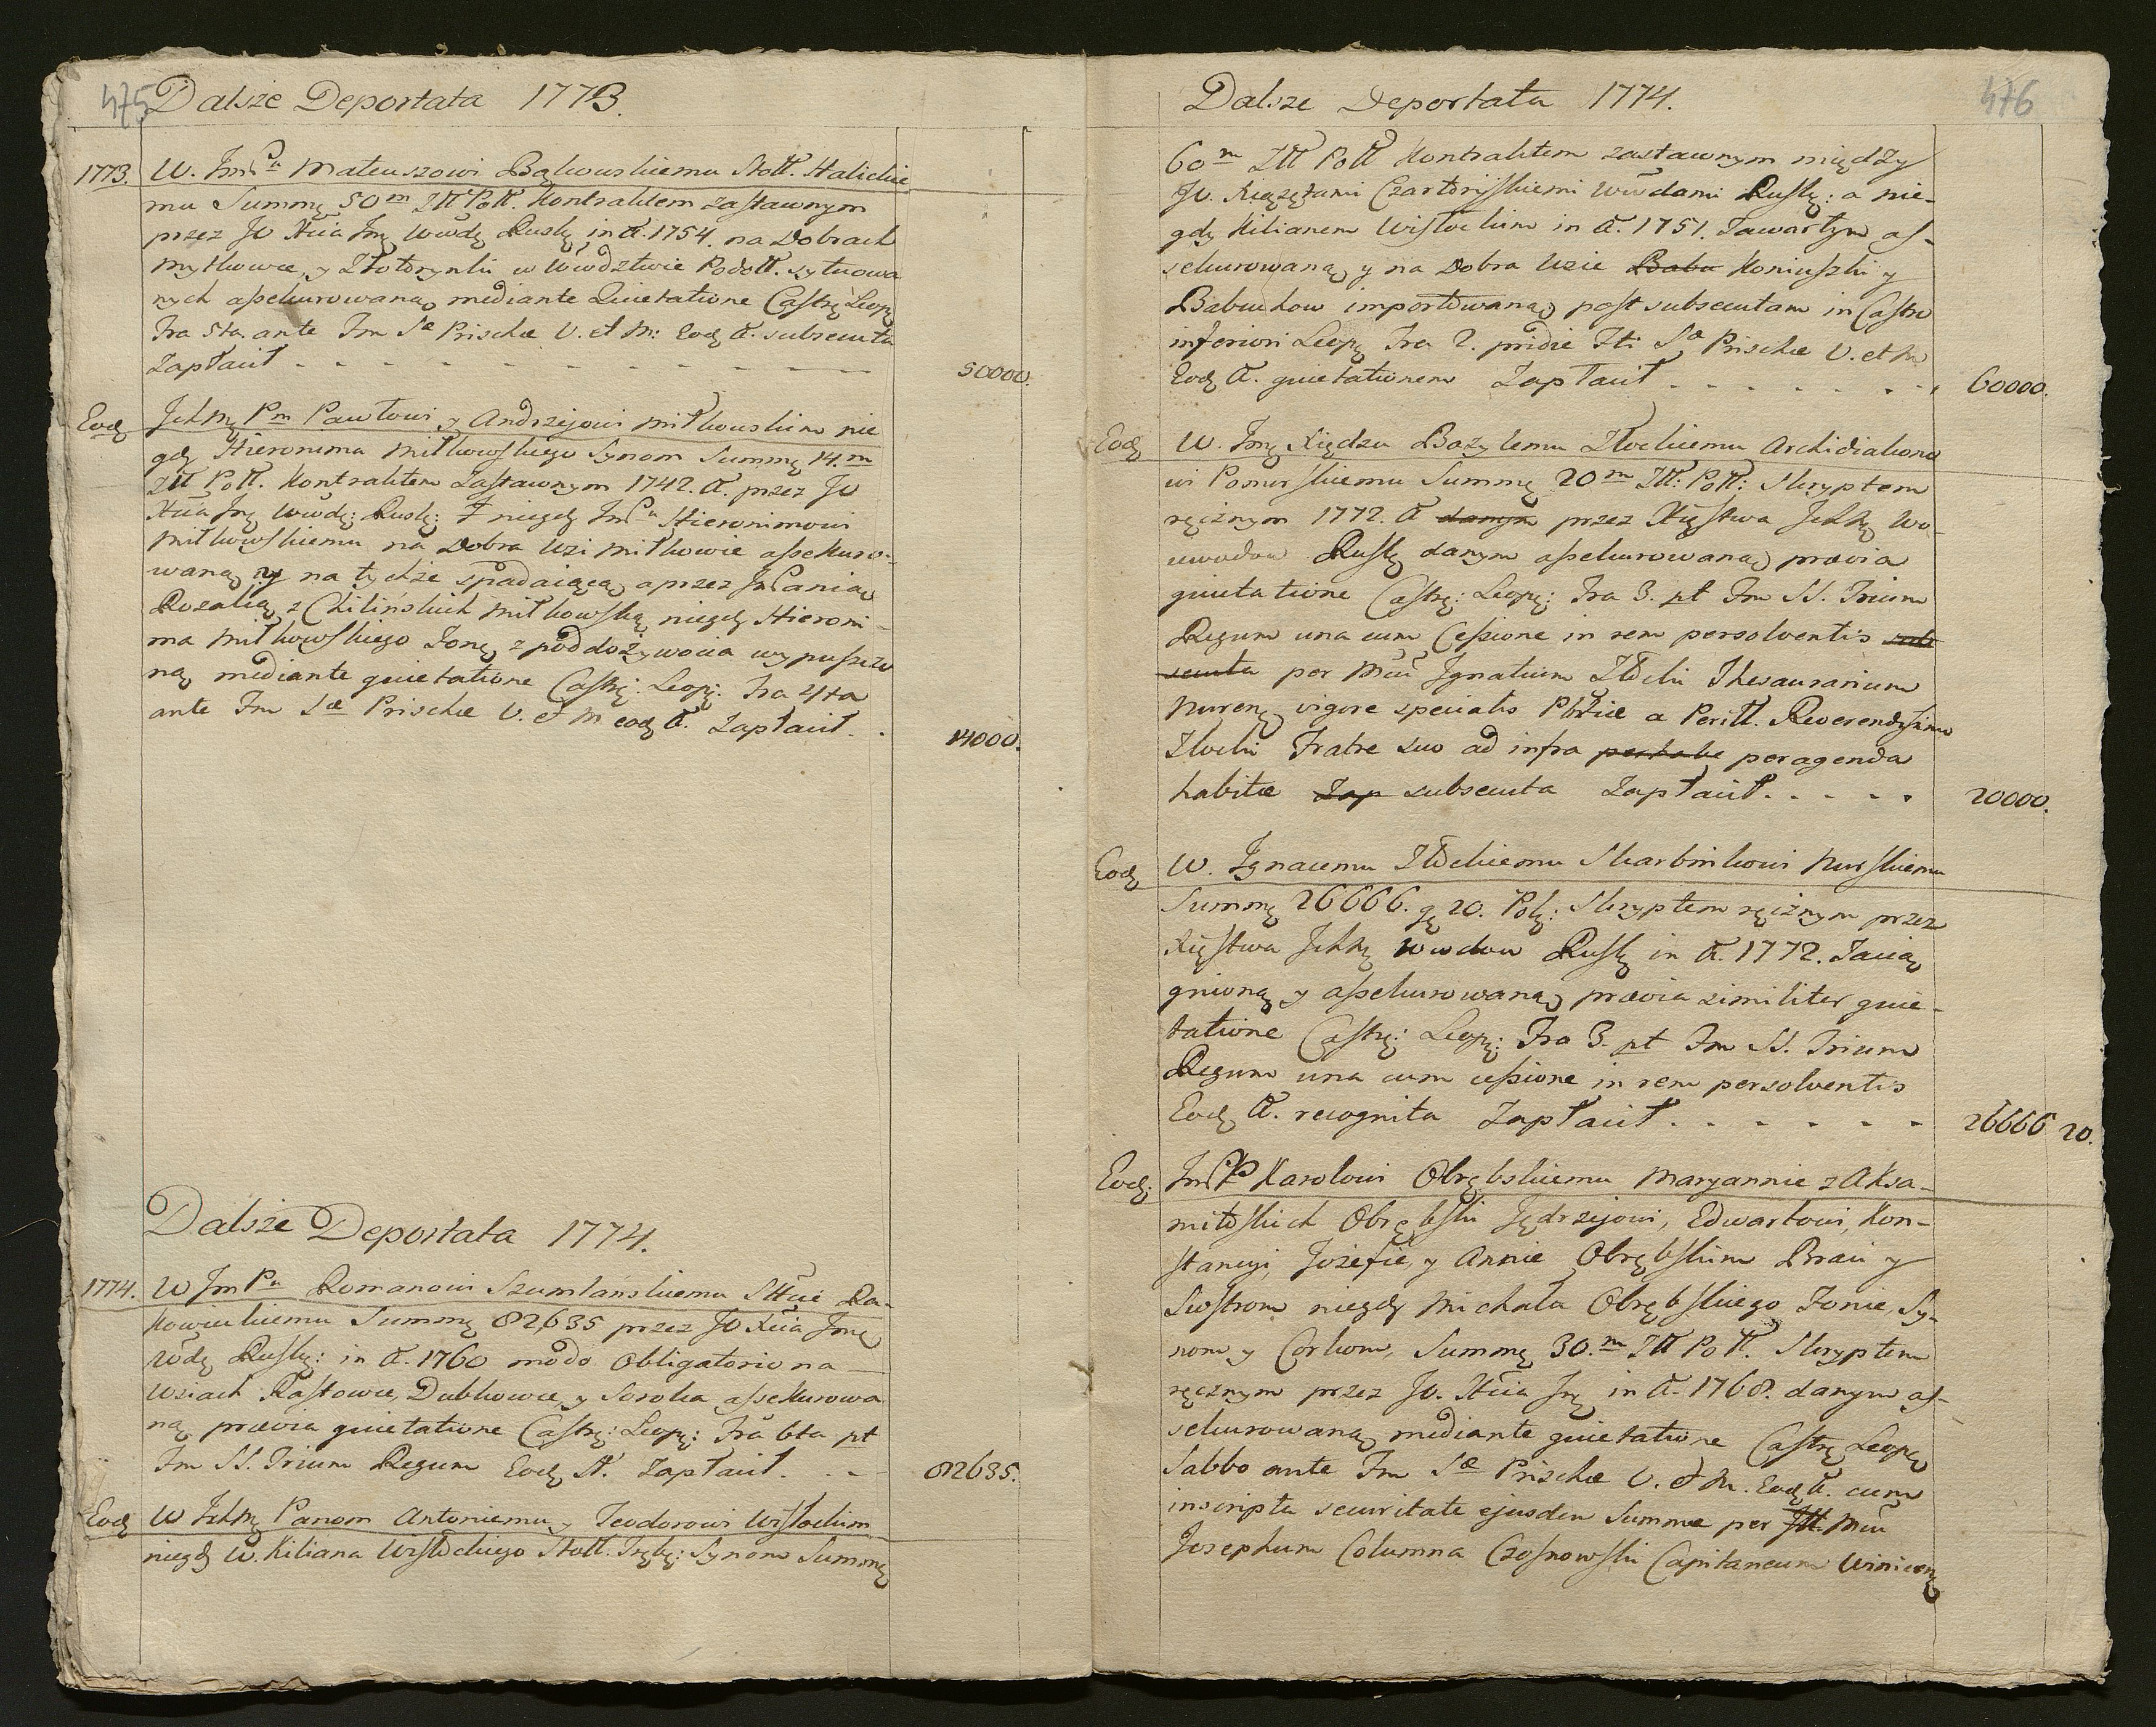 475
Dalsze Deportata 1773.
1773. W. Jm Pu Mateuszowi Bąkowskiemu Stoll. Halickie
mu Summę 50m Zll Poll. Kontraktem zastawnym
przez JO Xcia Jmę Wwdę Ruskę in A. 1754. na Dobrach
Mytkowce, y Złotorynki w Wwdztwie Podoll. sytuowa
nych assekurowaną mediante Quietatione Castrę Leopę
Fra 5ta ante Fm Sæ Priscæ V. et M: Eodę A. subsecuta
Zapłacił - - - - - - - - - - - - 50000.
Eodę Jchmę Pm Pawłowi y Andrzejowi Miłkowskim nie
gdę Hieronima Miłkowskiego Synom Summę 14.m
Zll Poll. Kontraktem Zastawnym 1742. A. przez JO
Xcia Jmę Wwdę: Ruskę: niegdę Jm Pu Hieronimowi
Miłkowskiemu na Dobra Wsi Miłkowie assekuro-
waną y na tychże spadaiącą a przez Jm Panią
Rozalią z Chilińskich Miłkowską niegdę Hieroni-
ma Miłkowskiego Żonę z pod dożywocia wypuszczo
ną mediante quietatione Castrę: Leopę: Fra 4ta
ante Fm Sæ Priscæ V. et M eodę A. Zapłacił. . 14000.
Dalsze Deportata 1774.
1774. W Jm Pu Romanowi Szumlańskiemu Sttcie Ra-
kowieckiemu Summę 82635 przez JO Xcia Jmę
Wdę Ruskę: in A. 1760 modo obligatorio na
Wsiach Rastowce, Dubkowce, y Soroka assekurowa
ną prævia quietatione Castrę: Leopę: Fra 6ta pt
Fm SS. Trium Regum Eodę A. Zapłacił. . - 82635.
Eodę W Jchmę Panom Antoniemu y Teodorowi Wisłockim
niegdę W. Kiliana Wisłockiego Stoll. Trębę: Synom Summę
476
Dalsze Deportata 1774.
60m Zll Poll Kontraktem zastawnym między
JO. Xiążętami Czartoryjskiemi Wwdami Ruskę: a nie-
gdę Kilianem Wisłockim in A. 1751. Zawartym as-
sekurowaną y na Dobra Wsie Baba Koniuszki y
Babuchow importowaną post subsecutam in Castro
inferiori Leopę Fra 2. pridie Fti Sæ Priscæ V. et M
Eodę A. quietationem Zapłacił . - - - - - . . 60000.
Eodę W. Jmę Xiędzu Bazylemu Złockiemu Archidiakono
wi Ponurskiemu Summę 20m Zll: Poll: Skryptem
ręcznym 1772. A danym przez Xięstwa Jchmę Wo
iewodow Ruskę danym assekurowaną prævia
quietatione Castrę: Leopę: Fra 3. pt Fm SS. Trium
Regum una cum Cessione in rem persolventis sub
secuta per Mcu Ignatium Złocki Thesaurarium
Nurenę vigore specialis Plrciæ a Perill. Reverendissimo
Złocki Fratre suo ad infra peragenda
habitæ Zap subsecuta Zapłacił. . - - . 20000.
Eodę W. Ignacemu Złockiemu Skarbnikowi Nurskiemu
Summę 26666. gę 20. Polę: Skryptem ręcznym przez
Xięstwa Jchmę Wwdow Ruskę in A. 1772. Zacią
gnioną y assekurowaną prævia similiter quie-
tatione Castrę: Leopę: Fra 3. pt Fm SS. Trium
Regum una cum cessione in rem persolventis
Eodę A. recognita Zapłacił. - - - - - 26666 20.
Eodę. Jm P Karolowi Obrębskiemu Maryannie z Aksa-
mitowskich Obrębski Jędrzejowi, Edwartowi, Kon-
stancyi, Jozefie, y Annie Obrębskim Braci y
Siostrom niegdę Michała Obrębskiego Żonie, Sy-
nom y Corkom, Summę 30.m Zll Poll. Skryptem
ręcznym przez JO. Xcia Jmę in A. 1768. danym as-
sekurowaną mediante quietatione Castrę Leopę
Sabbo ante Fm Sæ Priscæ V. et M. Eodę A. cum
inscripta securitate ejusdem Summæ per Mcu
Josephum Columna Czosnowski Capitaneum Winicenę